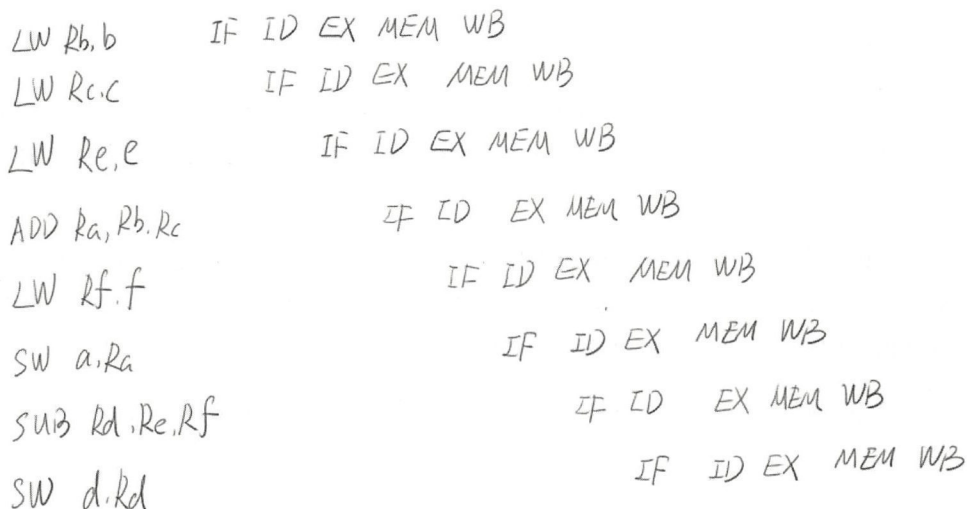 LW Rb,b IF ID EX MEM WB
LW Rc.c IF ID EX MEM WB
LW Re,e IF ID EX MEM WB
ADD Ra,Rb.Rc IF ID EX MEM WB
LW Rf.f IF ID EX MEM WB
SW a,Ra IF ID EX MEM WB
SUB Rd,Re,Rf IF ID EX MEM WB
SW d.Rd IF ID EX MEM WB